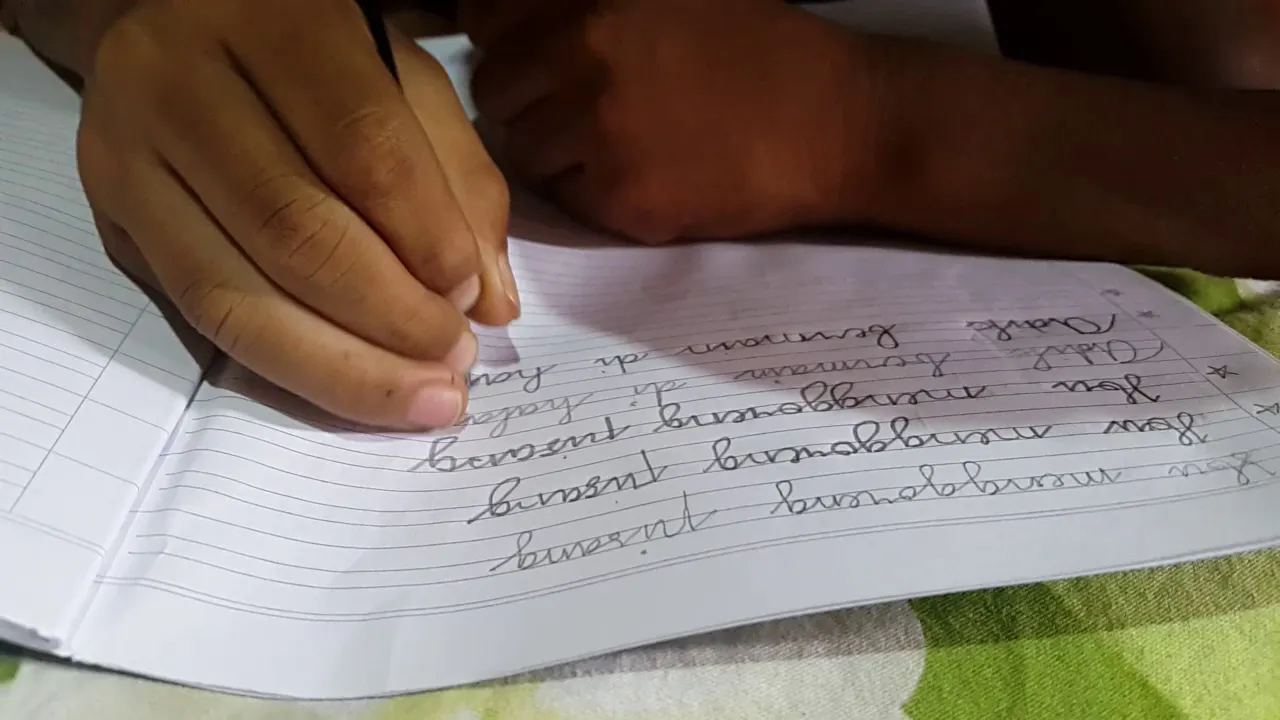 Ibu menggoreng pisang
Ibu menggoreng pisang
Ibu menggoreng pisang
Adik bermain di hala
Adik bermain di ha